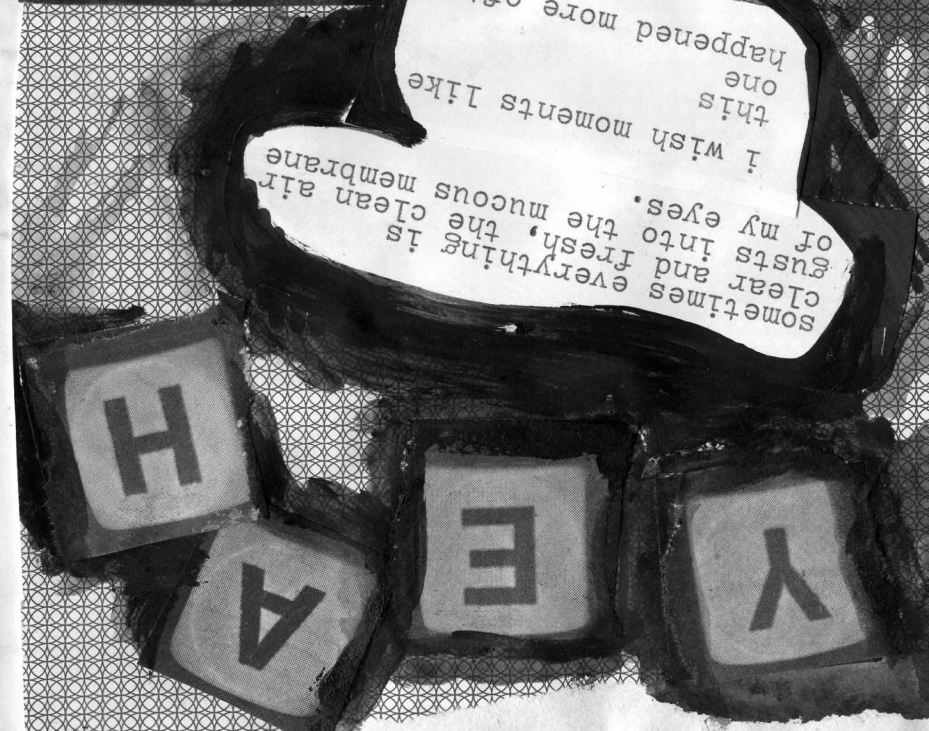 YEAH
sometimes everything is
clear and fresh, the clean air
gusts into the mucous membrane
of my eyes.
i wish moments like
this
one
happened more